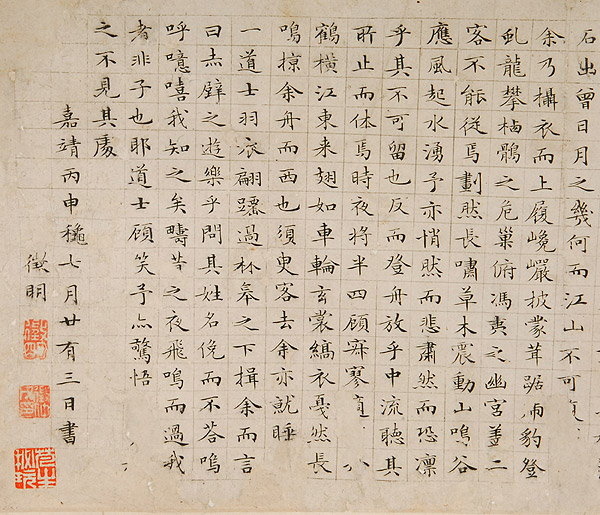 石出曾日月之幾何而江山不可
余乃攝衣而上履巉巖披蒙茸踞虎豹登
虬龍攀栖鶻之危巢俯馮夷之幽宮蓋二
客不能從焉劃然長嘯草木震動山鳴谷
應風起水湧予亦悄然而悲肅然而恐凜
乎其不可留也反而登舟放乎中流聽其
所止而休焉時夜將半四顧寂寥
鶴橫江東来翅如車輪玄裳縞衣戛然長
鳴掠余舟而西也須臾客去余亦就睡
一道士羽衣翩躚過林皋之下揖余而言
曰赤壁之遊樂乎問其姓名俛而不荅嗚
呼噫嘻我知之矣疇昔之夜飛鳴而過我
者非子也耶道士顧笑予亦驚悟
之不見其處
嘉靖丙申穐七月廿有三日書
徵明